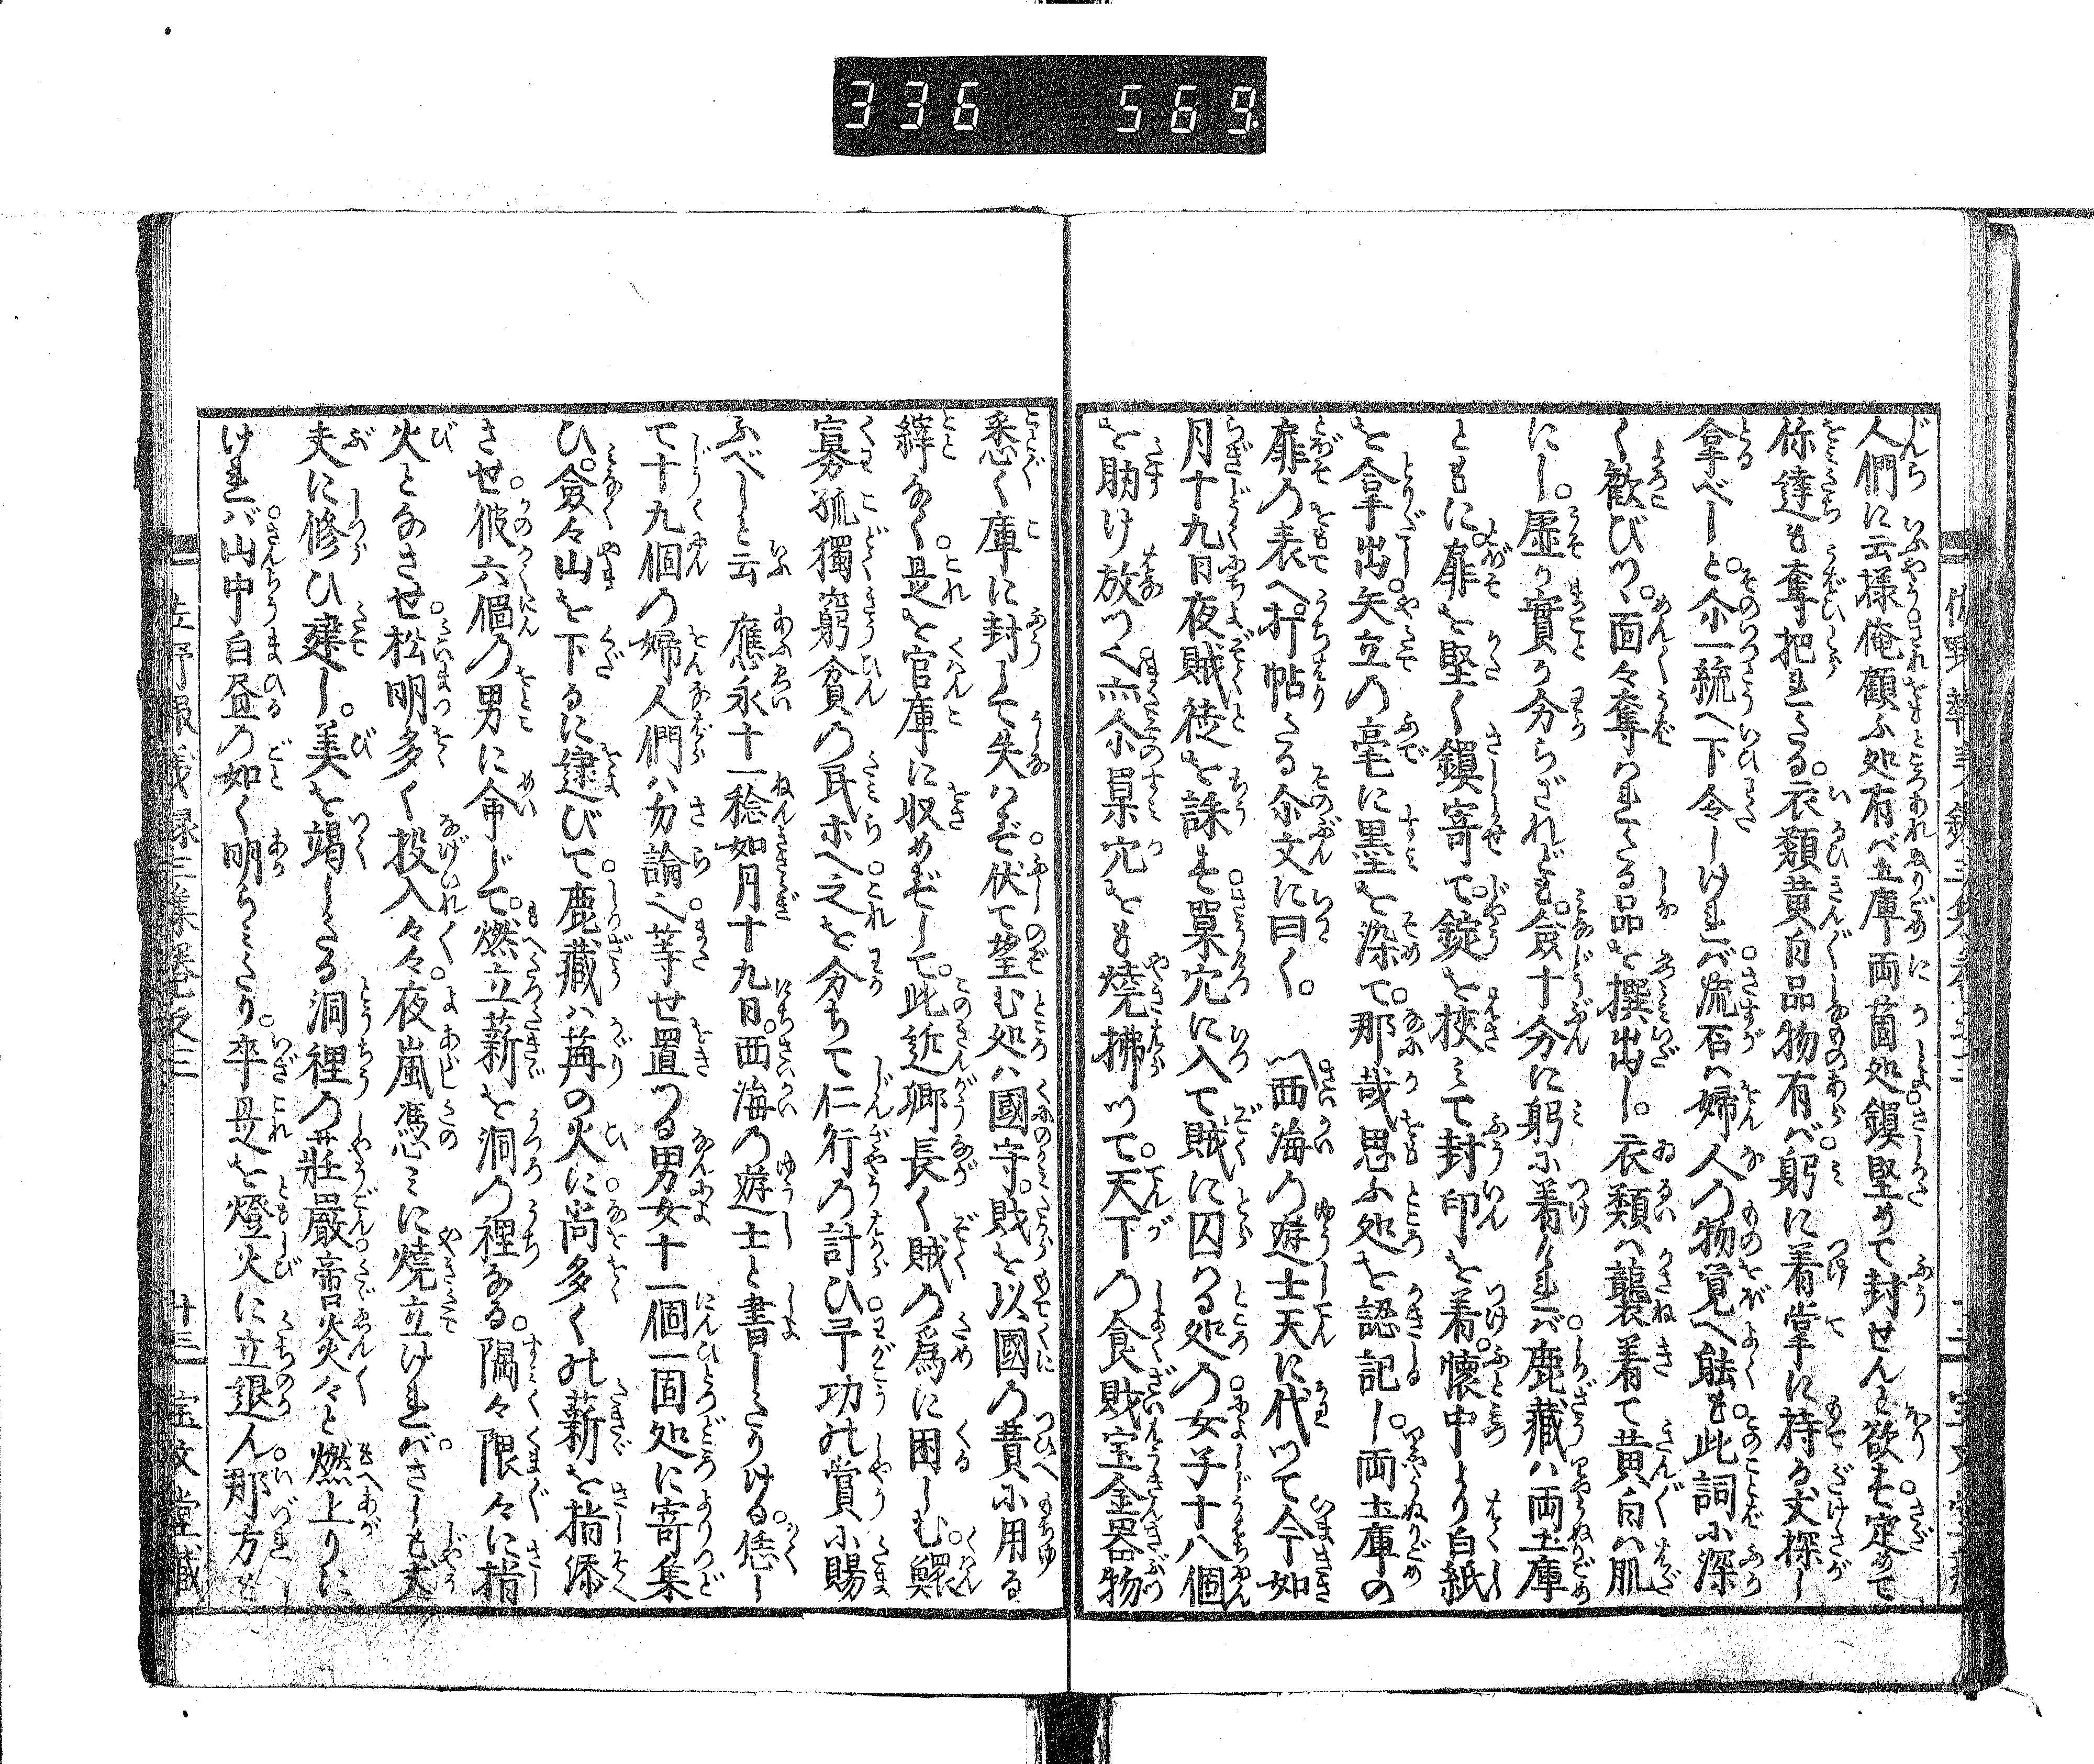 336 569.
人們に云様俺顧ふ処有バ土庫両箇処鎖堅めて封せんと欲す定めて
你達も奪把れたる衣類黄白品物有バ躬に着掌に持る丈探し
拿べしと尒一統へ下令しけれバ流石ハ婦人の物覚へ能も此詞に深
く歓びツヽ面々奪れたる品を撰出し。衣類ハ襲着て黄白ハ肌
にし。虚か實か分らざれども。僉十分に躬に着けれバ鹿藏ハ両土庫
ともに扉を堅く鎖寄て錠を挾ミて封印を着懐中より白紙
を拿出矢立の毫に墨を染て。那哉思ふ処を認記し。両土庫の
扉の表へ打帖たる尒文に曰く。　西海の遊士天に代ツて今如
月十九日夜賊徒を誅す巣穴に入て賊に囚るる処の女子十八個
を助け放ツ又尒巣穴をも焼拂ツて天下の食財宝金器物
悉く庫に封して失ハず伏て望む処ハ國守賊を以國の費に用る
繹なく是を官庫に収めずして。此近郷長く賊の爲に困しむ鰥
寡孤獨窮貧の民ホへ之を分ちて仁行の計ひ予功の賞に賜
ふべしと云　應永十一稔如月十九日。西海の遊士と書したりける。恁し
て十九個の婦人們ハ勿論又莩せ置ツる男女十一個一箇処に寄集
ひ。僉々山を下るに逮びて鹿藏ハ篝の火に尚多くの薪を指添
させ。彼六個の男に命じて。燃立薪を洞の裡なる。隅々隈々に指
火となさせ松明多く投入々々夜嵐憑ミに焼立けれバさしも丈
夫に修ひ建し。美を竭したる洞裡の莊嚴啻炎々と燃上りに
けれバ山中白昼の如く明らミたり。卒是を燈火に立退ん那方も
佐野報義録三集巻之三
廿三
宝文堂藏